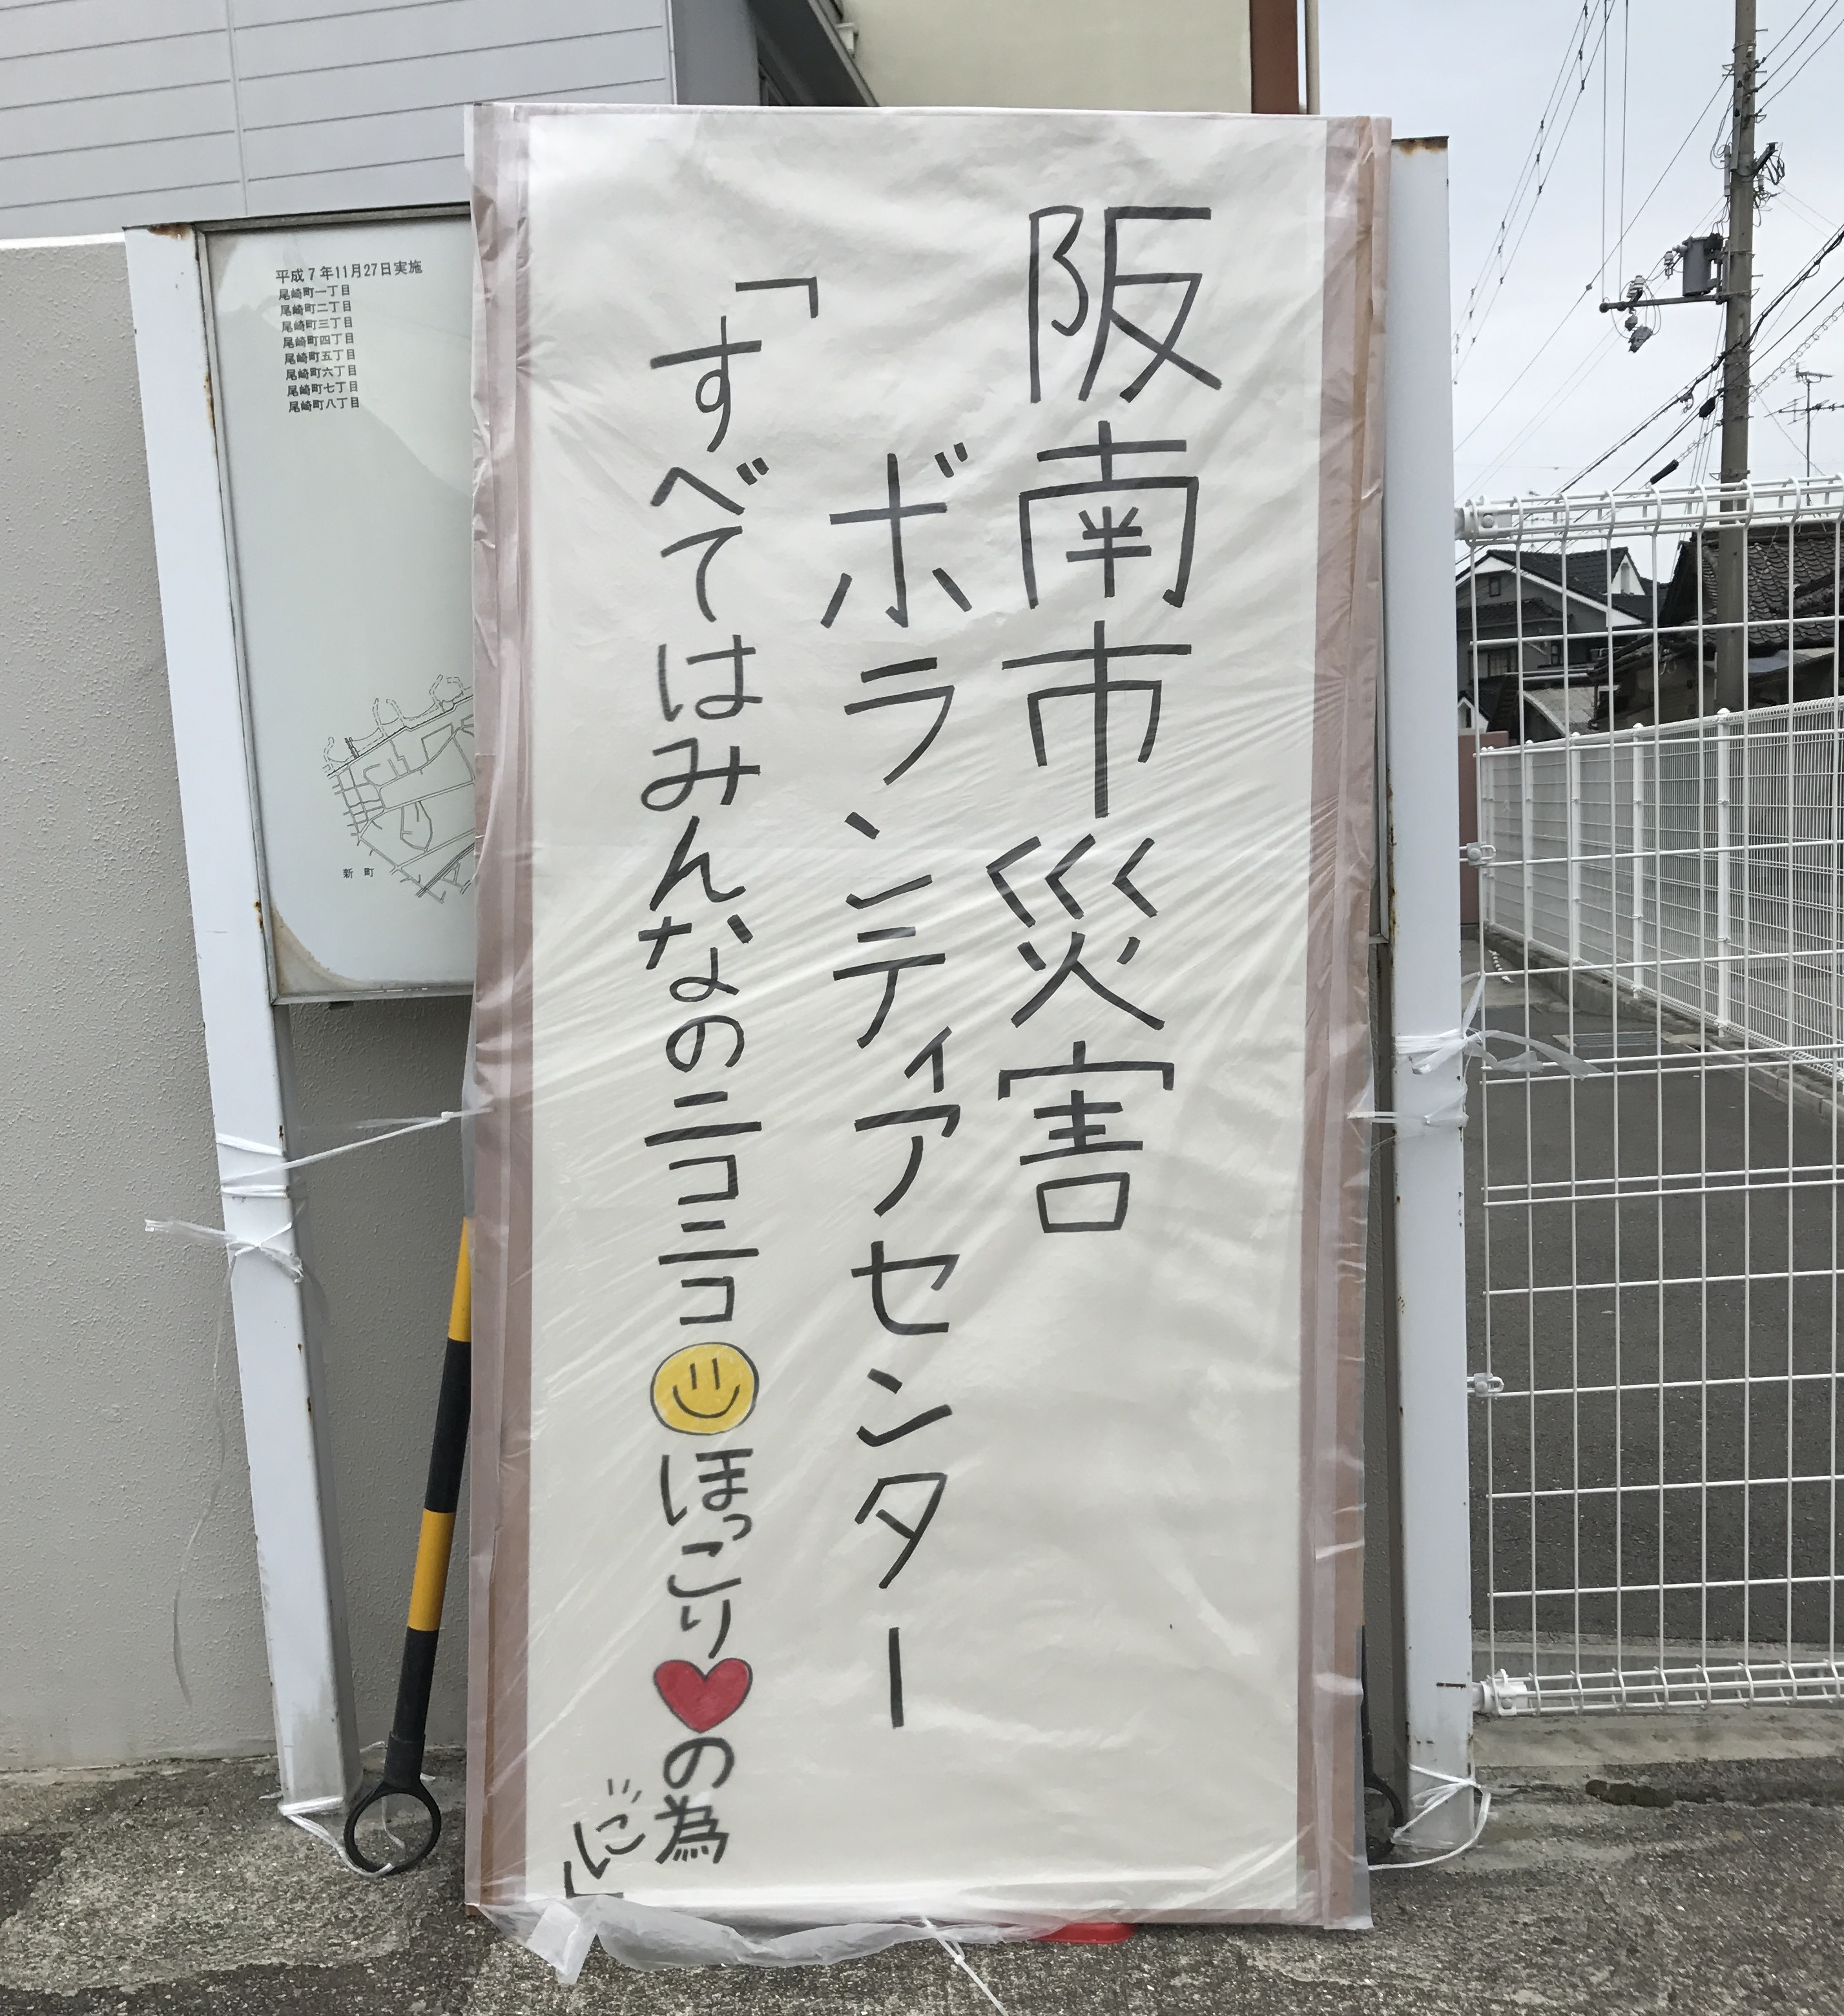 阪南市災害
ボランティアセンター
「すべてはみんなのニコニコほっこりの為
に」
平成7年11月27日実施
尾崎町一丁目
尾崎町二丁目
尾崎町三丁目
尾崎町四丁目
尾崎町五丁目
尾崎町六丁目
尾崎町七丁目
尾崎町八丁目
新町